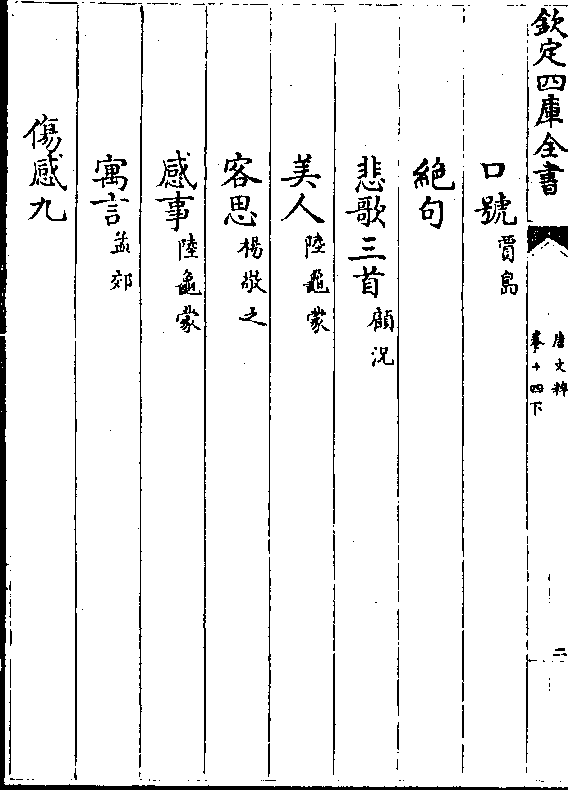 欽定四庫全書
唐文粹
卷十四下
二
口號賈島
絕句
悲歌三首顧況
美人陸龜蒙
客思楊敬之
感事陸龜蒙
寓言孟郊
傷感九